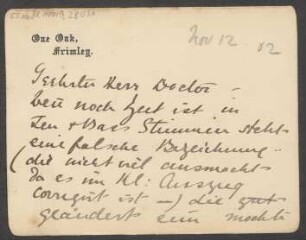 One Oak,
Frimley.
Nov 12 02
Geehrter Herr Doctor
wenn noch Zeit ist in
Ten & Bass Stimmen steht
eine falsche Bezeichnung
(die nicht viel ausmacht
da es im Kl: Auszug
corrigirt ist —) die
geändert sein möchte